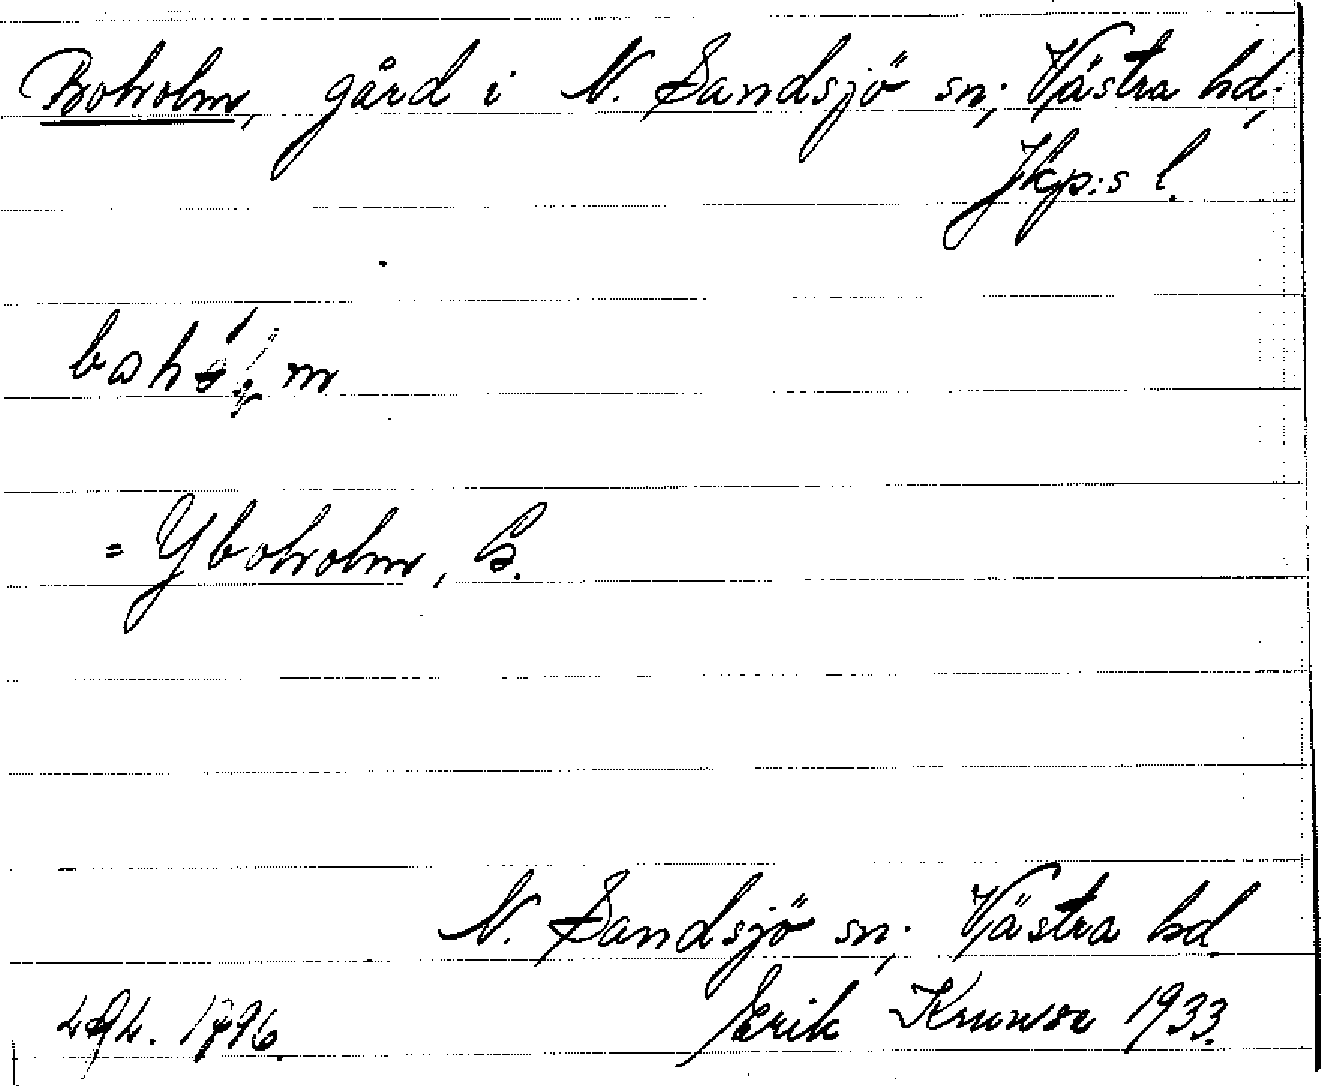 Boholm, gård i N. Sandsjö sn; Västra hd;
Jkp:s l.
= Yboholm, G.
N. Sandsjö sn; Västra hd
Erik 1933.
1796.